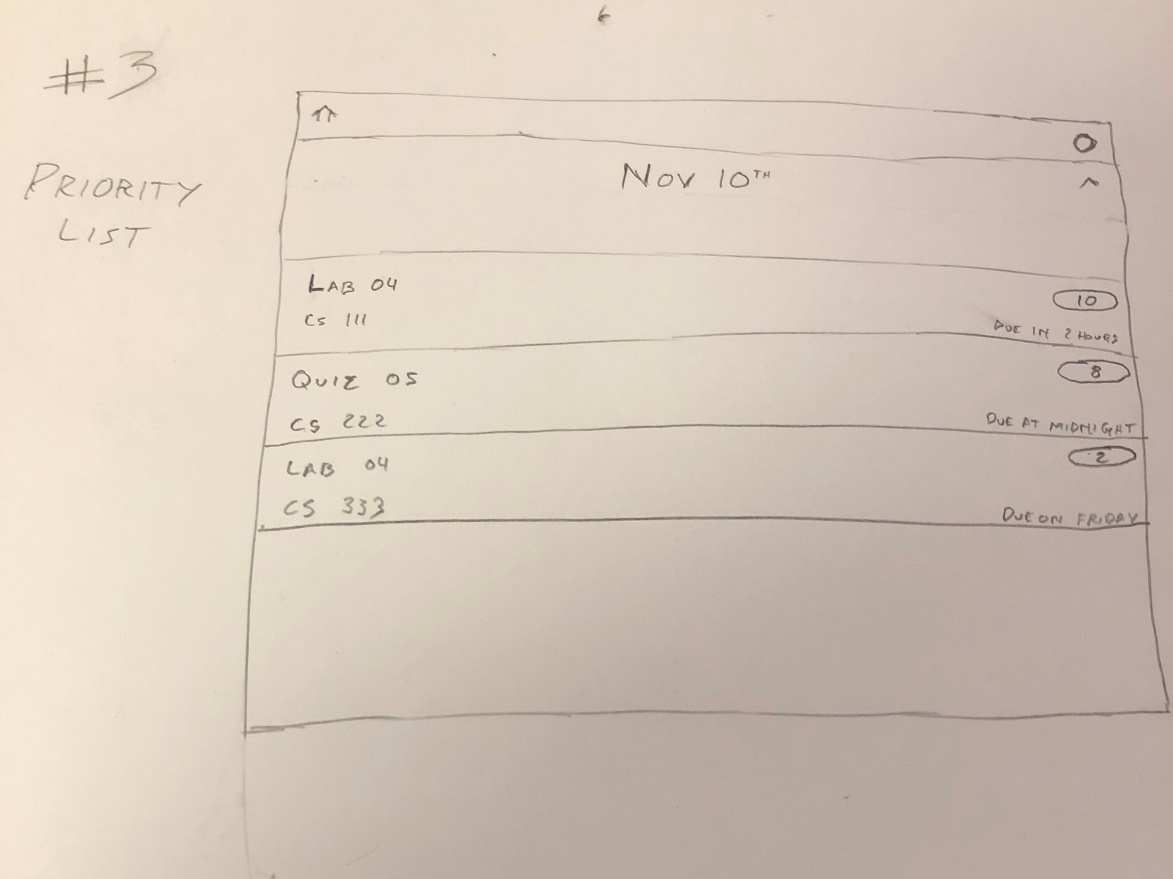 #3
PRIORITY
LIST
NOV 10TH
LAB 04
10
CS 111
DUE IN 2 HOURS
QUIZ 05
8
CS 222
DUE AT MIDNIGHT
LAB 04
2
CS 333
DUE ON FRIDAY